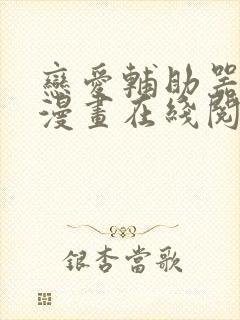 戀愛輔助器
漫畫在綫閱
銀杏當歌